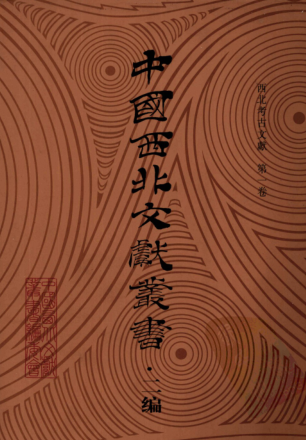 西北考古文獻 第一卷
中國西北文獻叢書·二编